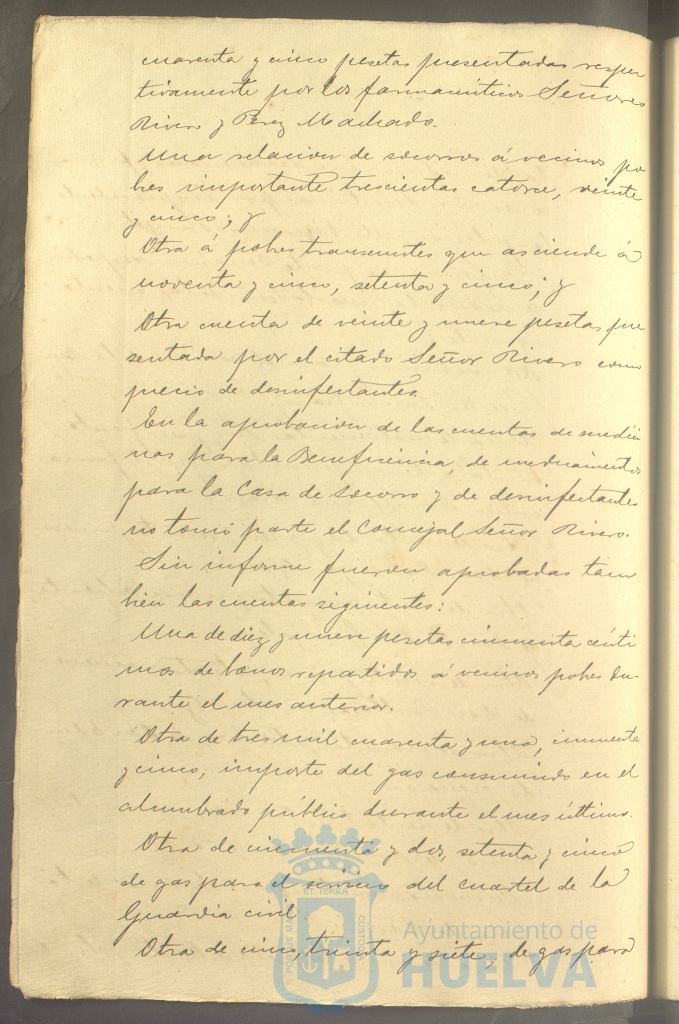 cuarenta y cinco pesetas presentadas respec
tivamente por los farmacéuticos Señores
Rivero y Perez Machado.
Una relacion de socorros á vecinos po
bres importante trescientas catorce, veinte
y cinco; y
Otra á pobres transeuntes que asciende á
noventa y cinco, setenta y cinco; y
Otra cuenta de veinte y nueve pesetas pre
sentada por el citado Señor Rivero como
precio de desinfectantes.
En la aprobacion de las cuentas de medici
nas para la Beneficencia, de medicamentos
para la Casa de Socorro y de desinfectantes
no tomó parte el Concejal Señor Rivero.
Sin informe fueron aprobadas tam
bien las cuentas siguientes:
Una de diez y nueve pesetas cincuenta cénti
mos de bonos repartidos á vecinos pobres du-
rante el mes anterior.
Otra de tres mil cuarenta y una, cincuenta
y cinco, importe del gas consumido en el
alumbrado público durante el mes último.
Otra de cincuenta y dos, setenta y cinco
de gas para el servicio del cuartel de la
Guardia civil.
Otra de cinco, treinta y siete, de gas para
Ayuntamiento de
HUELVA